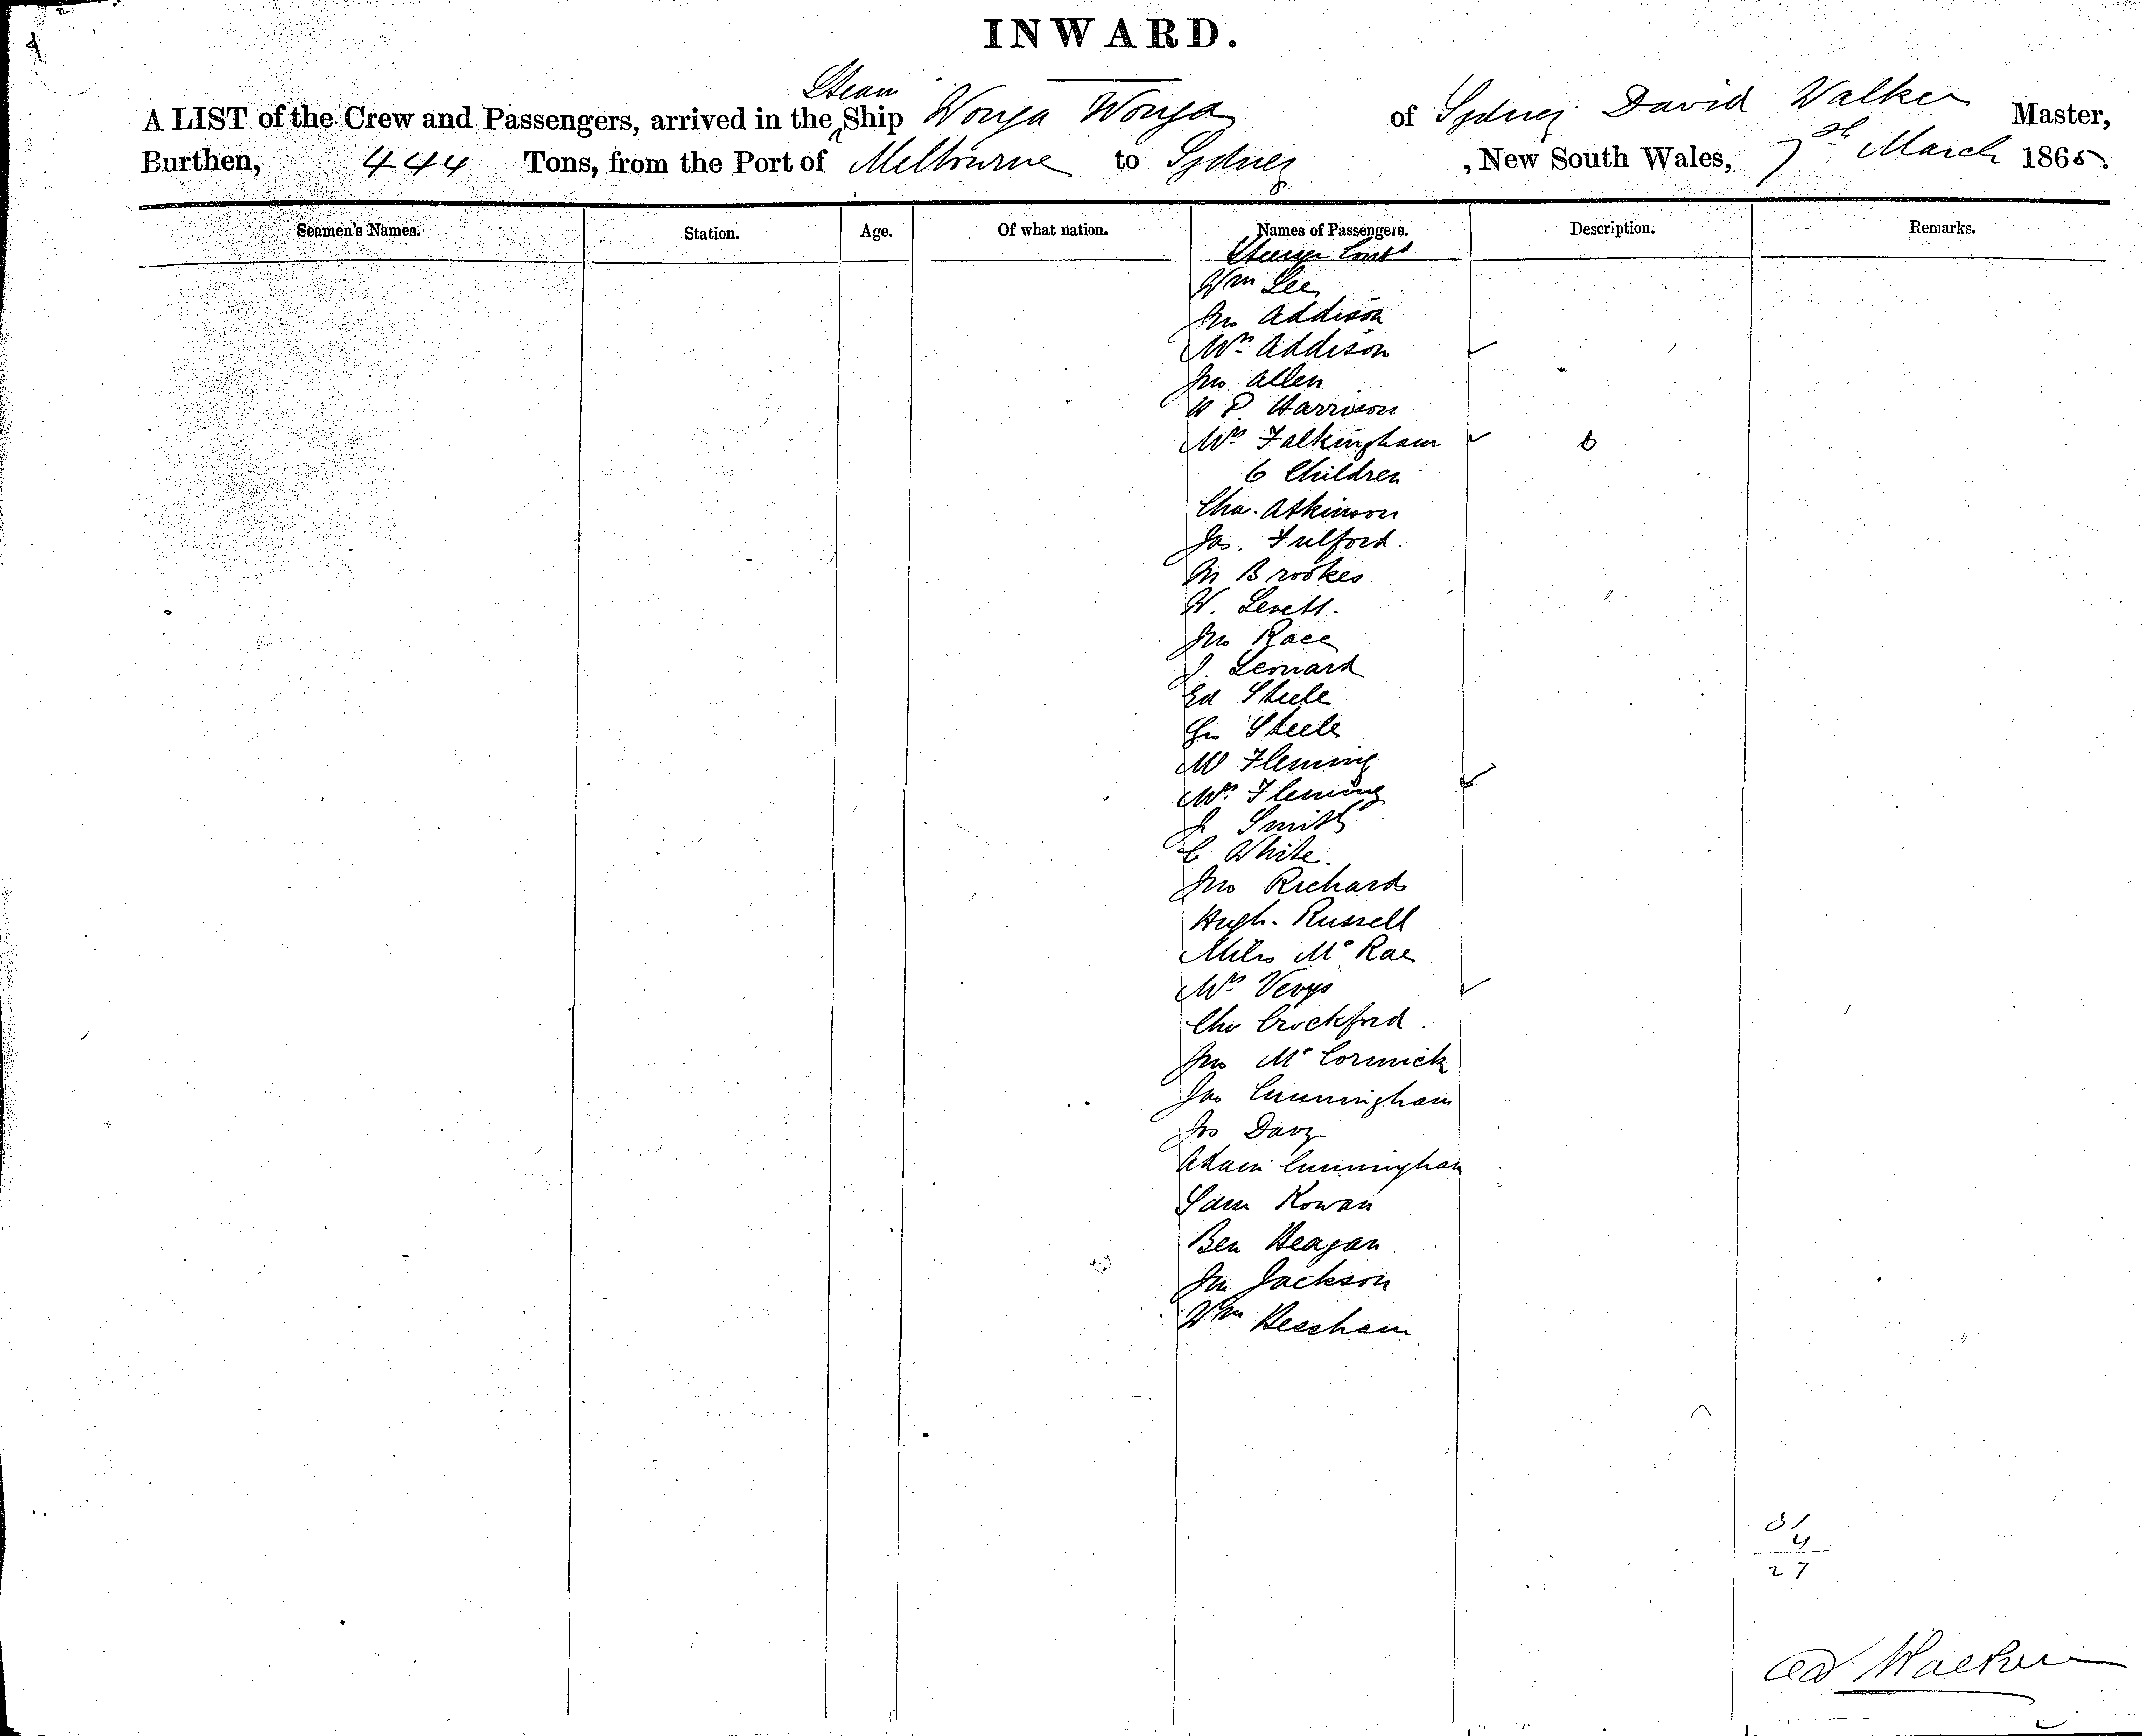 INWARD.
A LIST of the Crew and Passengers, arrived in the Steam Ship Wonga Wonga of Sydney David Walker Master,
Burthen, 444 Tons, from the Port of Melbourne to Sydney, New South Wales, 7th March 1865.
Seamen's Names. Station. Age. Of what nation. Names of Passengers. Description. Remarks.
Steerage Contd
Wm Lee
Jno Addison
Mrs Addison
Jno Allen
P. Harrison
Mrs Falkingham 6
6 Children
Cha. Atkinson
Jas. Fulford.
M Brookes
W. Levett.
Jno Race
J. Leonard
Ed Steele
Geo Steele
Mr Fleming
Mrs Fleming
J Smith
C White.
Jno Richards
Hugh. Russell
Miles McRae
Mrs Vevys
Chs Crockford.
Jno McCormick
Jas Cunningham
Jos Davy
Adam Cunningham
Sam Rowan
Ben Heagan
Jno Jackson
Wm Beecham
31
4
27